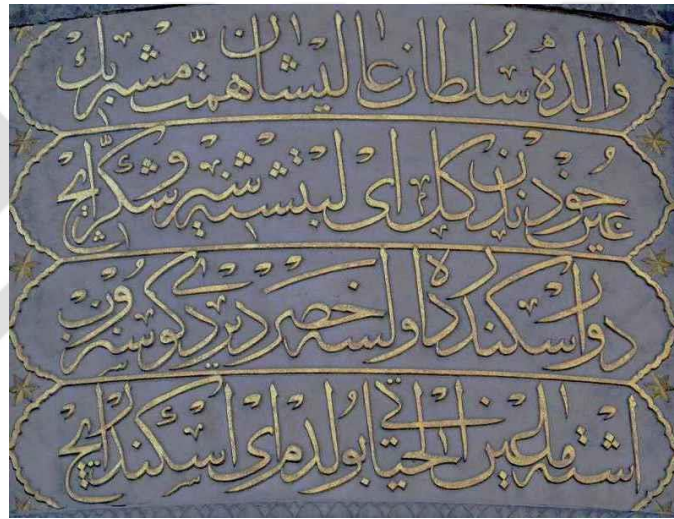 والده سلطان عاليشان همّت مشربك
عين جودندن كل اى لبتشنه شير و شكّر ايچ
دور اسكندرده اولسه خضر ديردى كوستروب
اشته ما عين الحياتى بولدم اى اسكندر ايچ